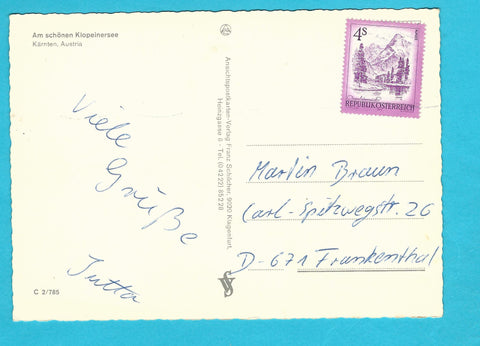 Am schönen Klopeinersee
Kärnten, Austria
Viele
Grüße
Jutta
C 2/785
Ansichtspostkarten-Verlag Franz Schilcher, 9020 Klagenfurt,
Heinzgasse 6 - Tel. (04222) 85229
4S
REPUBLIK ÖSTERREICH
Martin Braun
Carl-Spitzwegstr. 26
D-671 Frankenthal